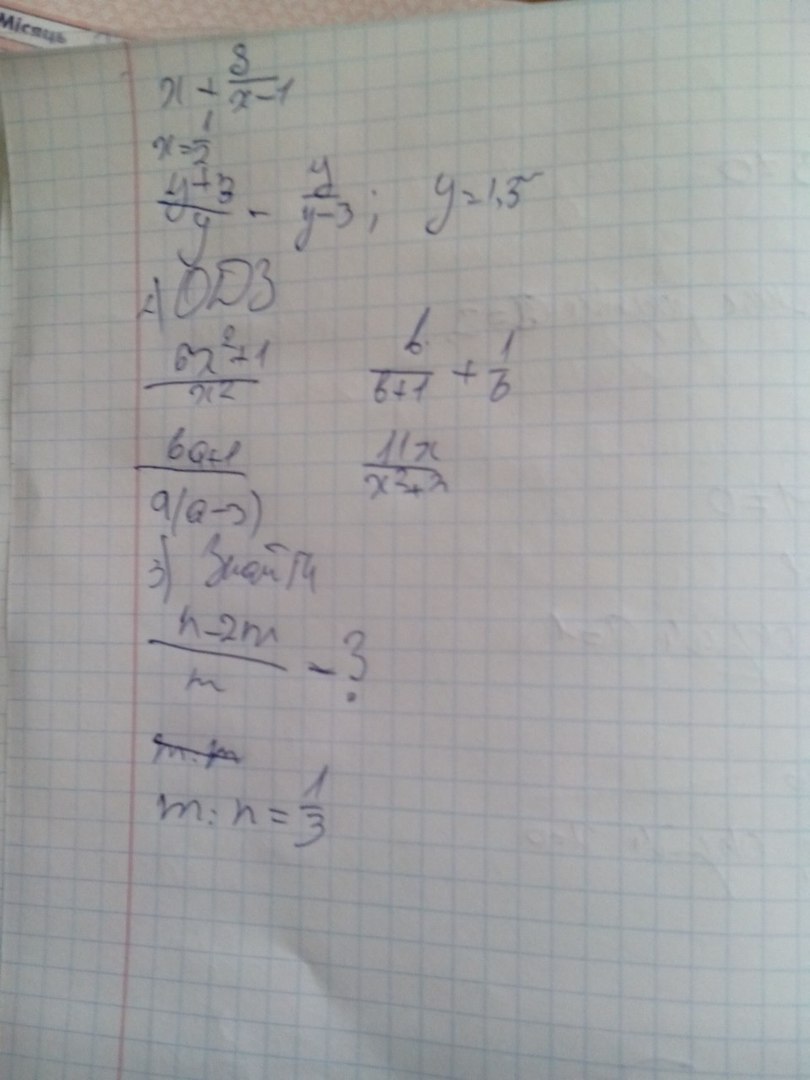 Місяць
x + 8/(x-1)
x = 1/2
(y+3)/y - y/(y-3); y = 1,5
ОДЗ
(6x²+1)/x² b/(b+1) + 1/b
(6a+1)/(a(a-3)) 11x/(x²+2)
3) Знайти
(n-2m)/m - ?
m : n = 1/3